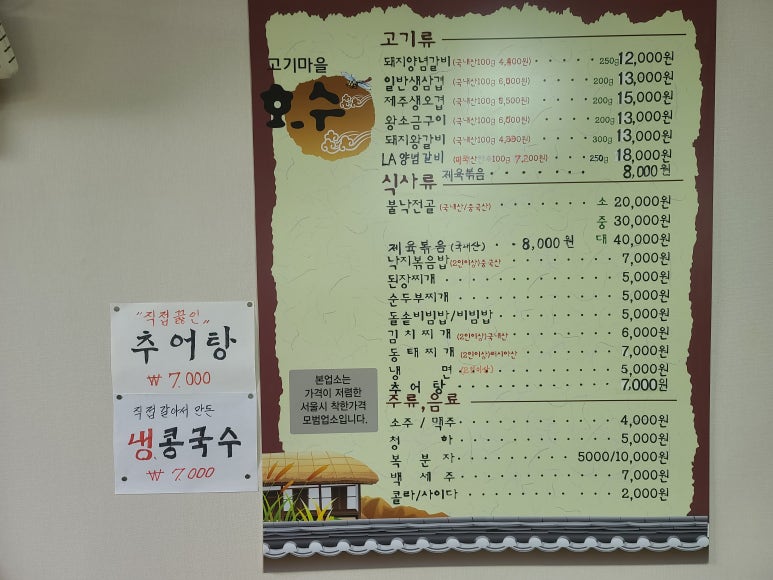 고기마을
호.수
고기류
돼지양념갈비 (국내산100g 4,800원) 250g 12,000원
일반생삼겹 (국내산100g 6,500원) 200g 13,000원
제주생오겹 200g 15,000원
왕소금구이 200g 13,000원
돼지왕갈비 300g 13,000원
LA양념갈비 7,200원) 250g 18,000원
제육볶음 8,000원
식사류
불낙전골 (국내산/중국산) 소 20,000원
중 30,000원
대 40,000원
제육볶음 (국내산) 8,000원
낙지볶음밥 (2인이상)중국산 7,000원
된장찌개 5,000원
순두부찌개 5,000원
돌솥비빔밥/비빔밥 5,000원
김치찌개 (2인이상)국내산 6,000원
동태찌개 (2인이상)러시아산 7,000원
냉면 5,000원
추어탕 7,000원
주류,음료
소주/맥주 4,000원
청하 5,000원
복분자 5000/10,000원
백세주 7,000원
콜라/사이다 2,000원
본업소는
가격이 저렴한
서울시 착한가격
모범업소입니다.
"직접끓인"
추어탕
₩7.000
직접 갈아서 만든
냉콩국수
₩7.000